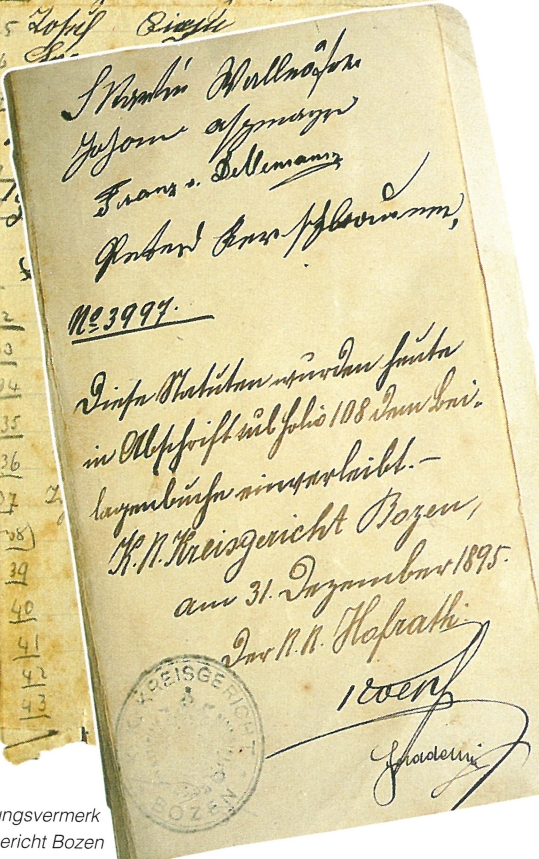 35
36
39
40
41
42
43
Martin
Johann
Franz v. Dellemann
Peter Kerschbaumer,
No 3997.
Diese Statuten wurden heute
in Abschrift sub folio 108 dem Bei-
lagenbuche einverleibt. –
K. K. Kreisgericht Bozen,
am 31. Dezember 1895.
Der K. K. Hofrath:
KREISGERICHT
BOZEN
ungsvermerk
ericht Bozen